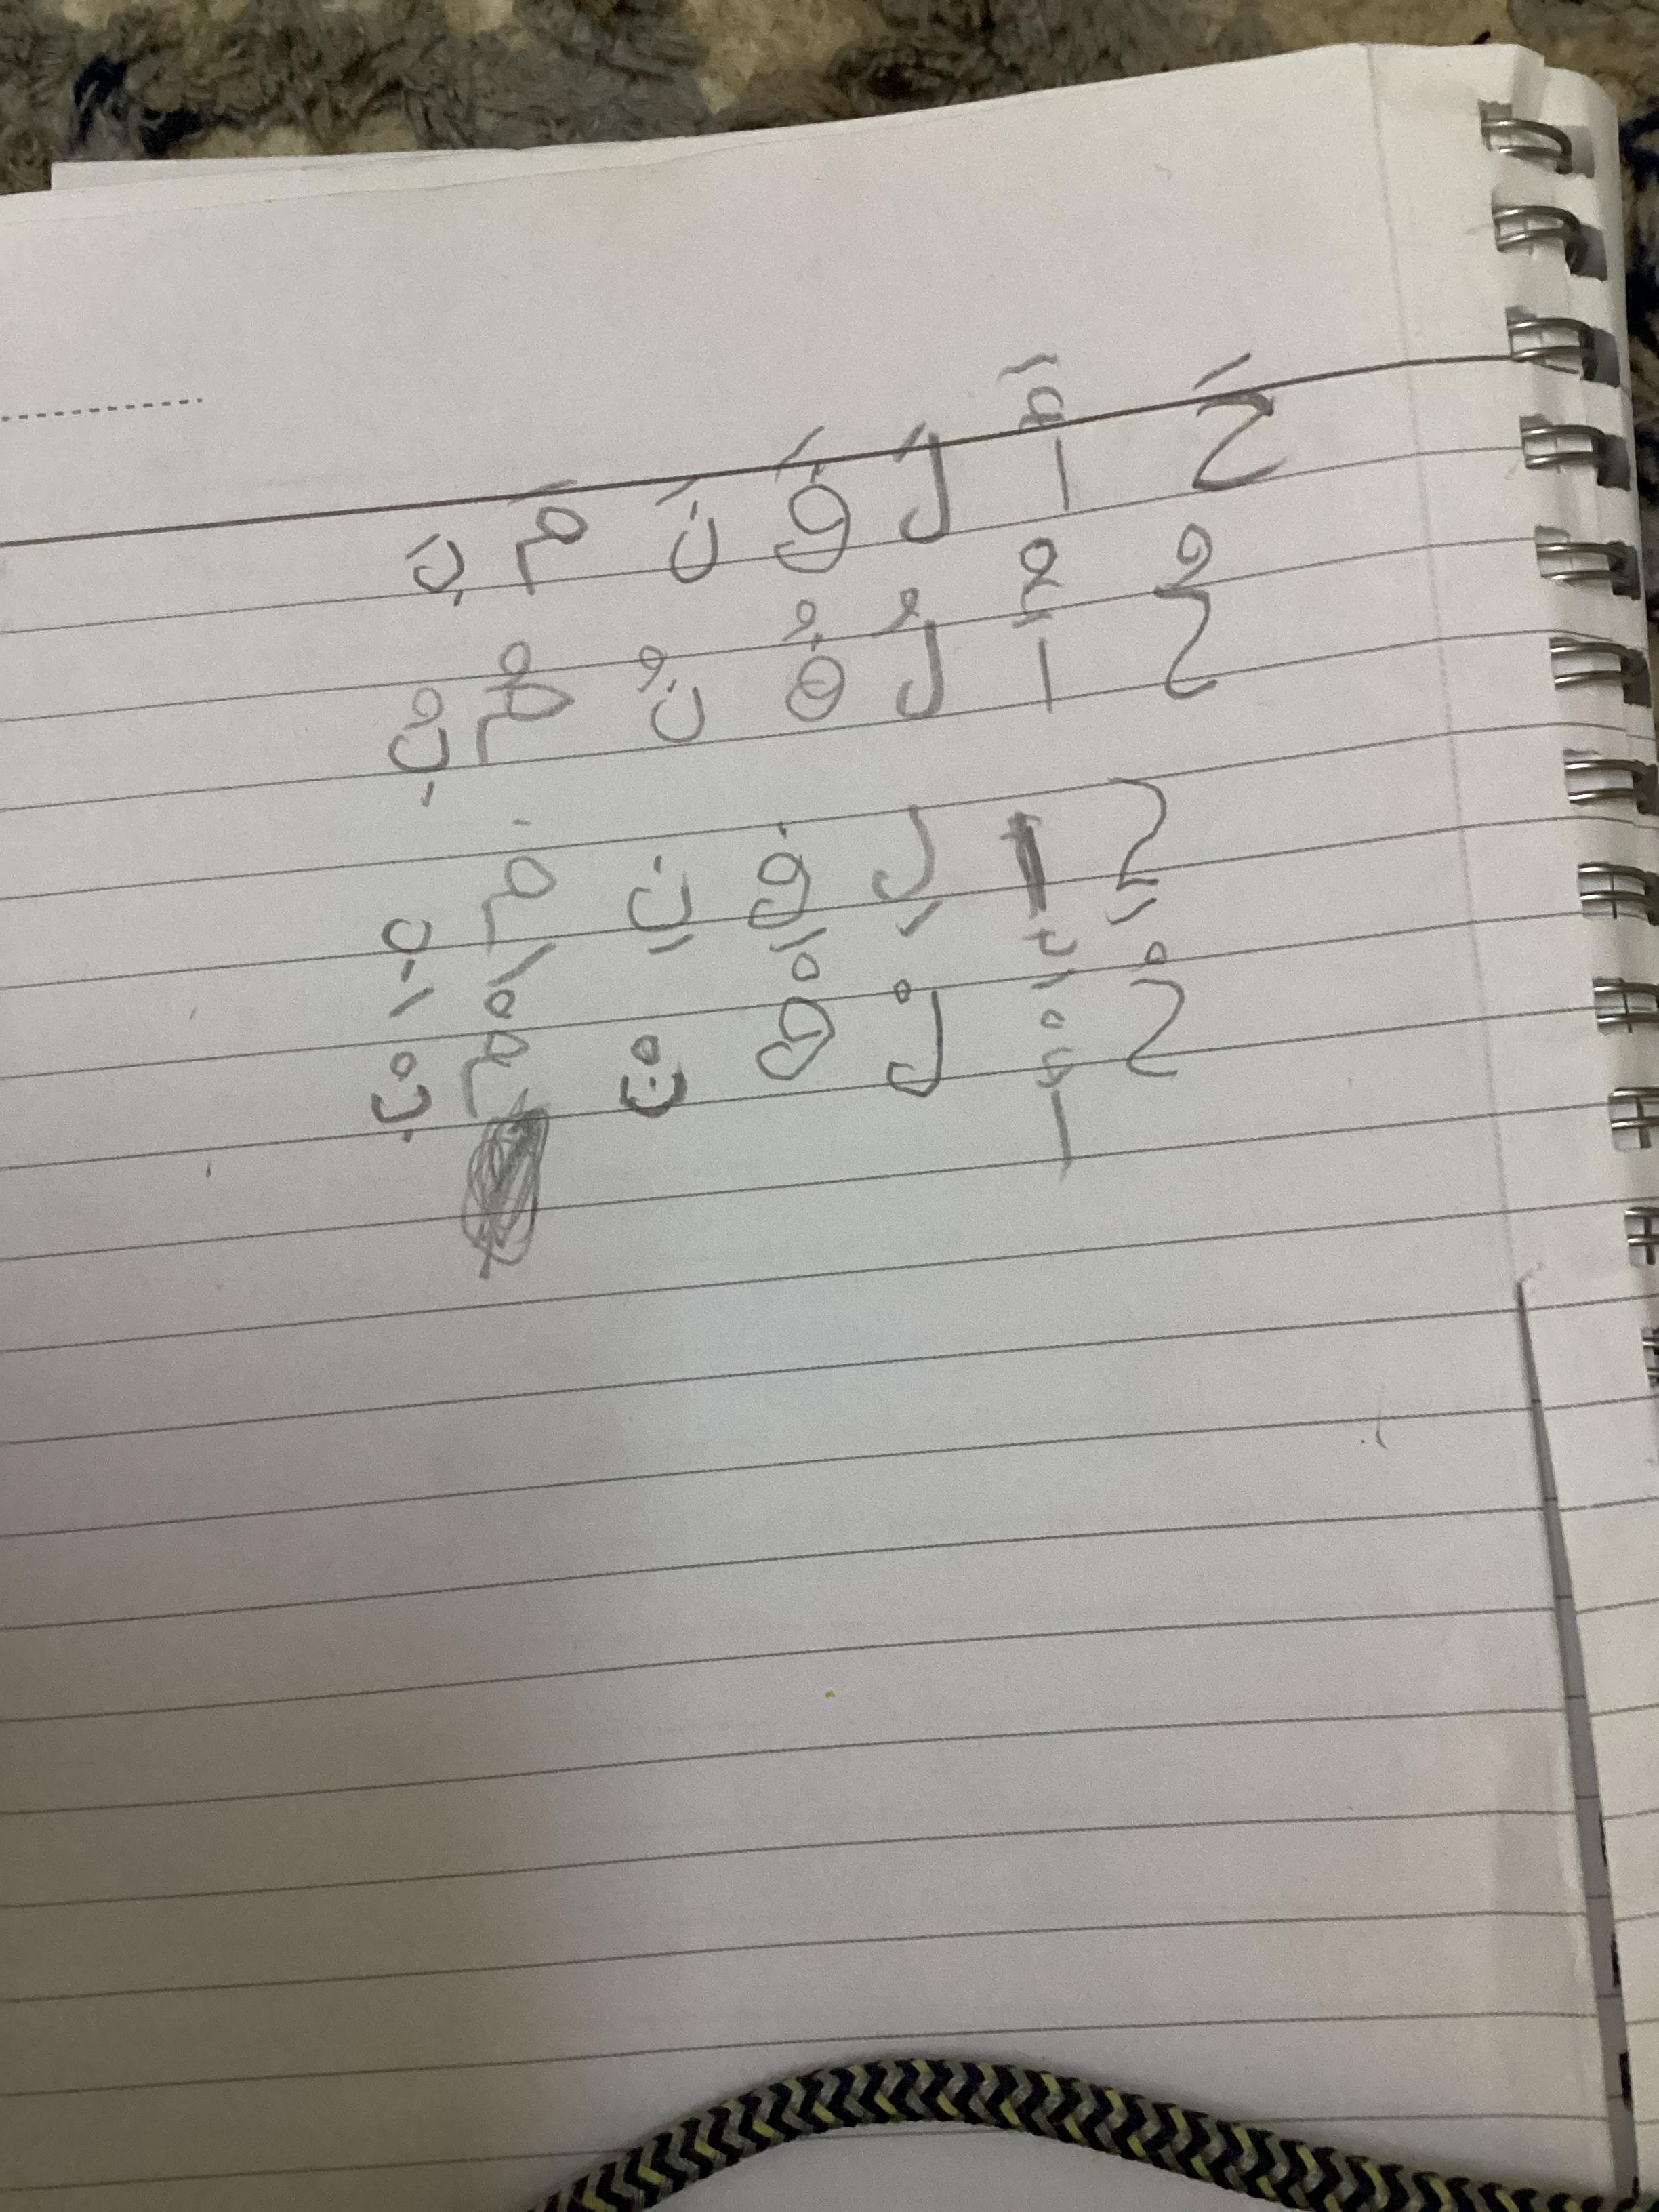 حَ أَ لَ فَ نَ مَ بَ
حُ أُ لُ فُ نُ مُ بُ
حِ إِ لِ فِ نِ مِ بِ
حْ أْ لْ فْ نْ مْ بْ